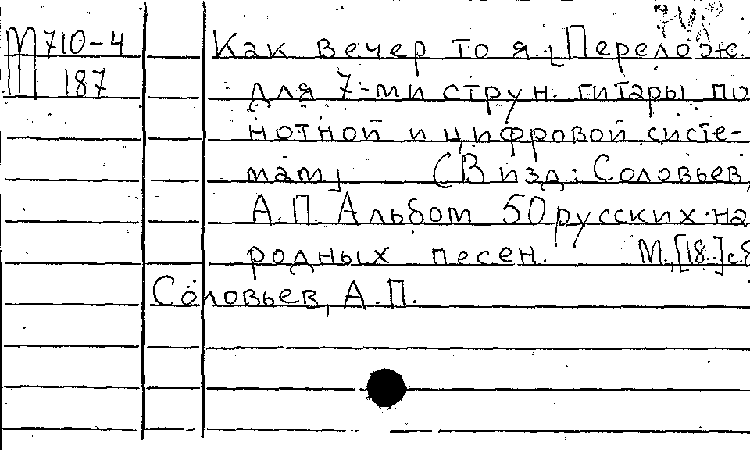 М 710-4
187
Как вечер то я [Перелож.
для 7-ми струн. гитары по
нотной и цифровой систе-
мам] (В изд: Соловьев,
А.П. Альбом 50 русских на-
родных песен. М., [18..] с8
Соловьев, А.П.